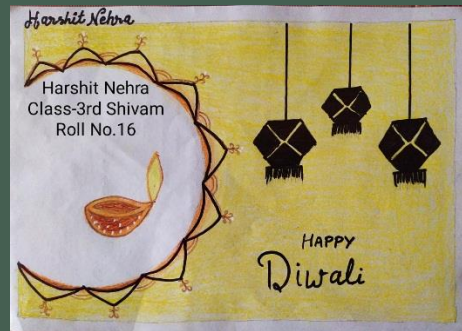 Harshit Nehra
Harshit Nehra
Class-3rd Shivam
Roll No.16
HAPPY
Diwali